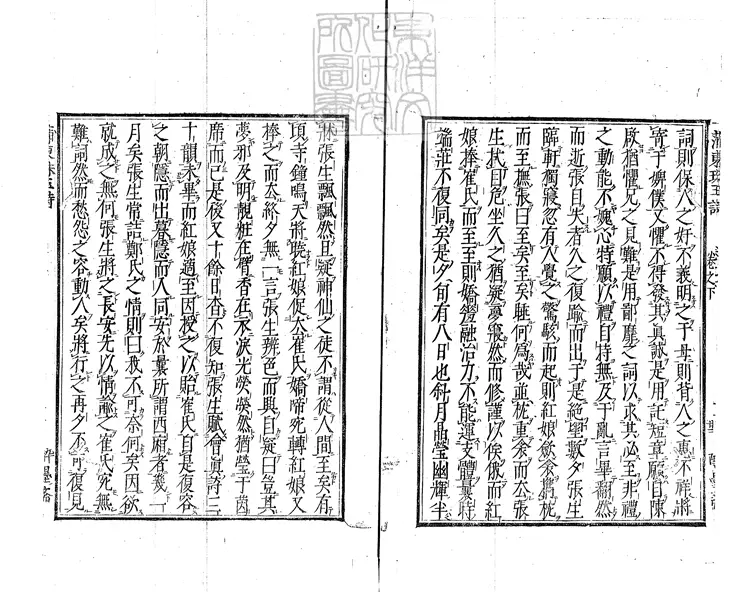 詞則保人之奸不義明之于母則背人之惠不祥將
寄于婢僕又懼不得發其真誠是用託短章願自陳
啟猶懼兄之見難是用鄙靡之詞以求其必至非禮
之動能不媿心特願以禮自持無及于亂言畢翻然
而逝張自失者久之復踰而出于是絕望數夕張生
臨軒獨寢忽有人覺之驚駭而起則紅娘斂衾攜枕
而至撫張曰至矣至矣睡何爲哉並枕重衾而去張
生拭目危坐久之猶疑夢寐然而修謹以俟俄而紅
娘捧崔氏而至至則嬌羞融冶力不能運支體曩時
端莊不復同矣是夕旬有八日也斜月晶瑩幽輝半
牀張生飄飄然且疑神仙之徒不謂從人間至矣有
頃寺鐘鳴天將曉紅娘促去崔氏嬌啼宛轉紅娘又
捧之而去終夕無一言張生辨色而興自疑曰豈其
夢邪及明靚粧在臂香在衣淚光熒熒然猶瑩于茵
席而已是後又十餘日杳不復知張生賦會真詩三
十韻未畢而紅娘適至因授之以貽崔氏自是復容
之朝隱而出暮隱而入同安於曩所謂西廂者幾一
月矣張生常詰鄭氏之情則曰我不可奈何矣因欲
就成之無何張生將之長安先以情諭之崔氏宛無
難詞然而愁怨之容動人矣將行之再夕不可復見